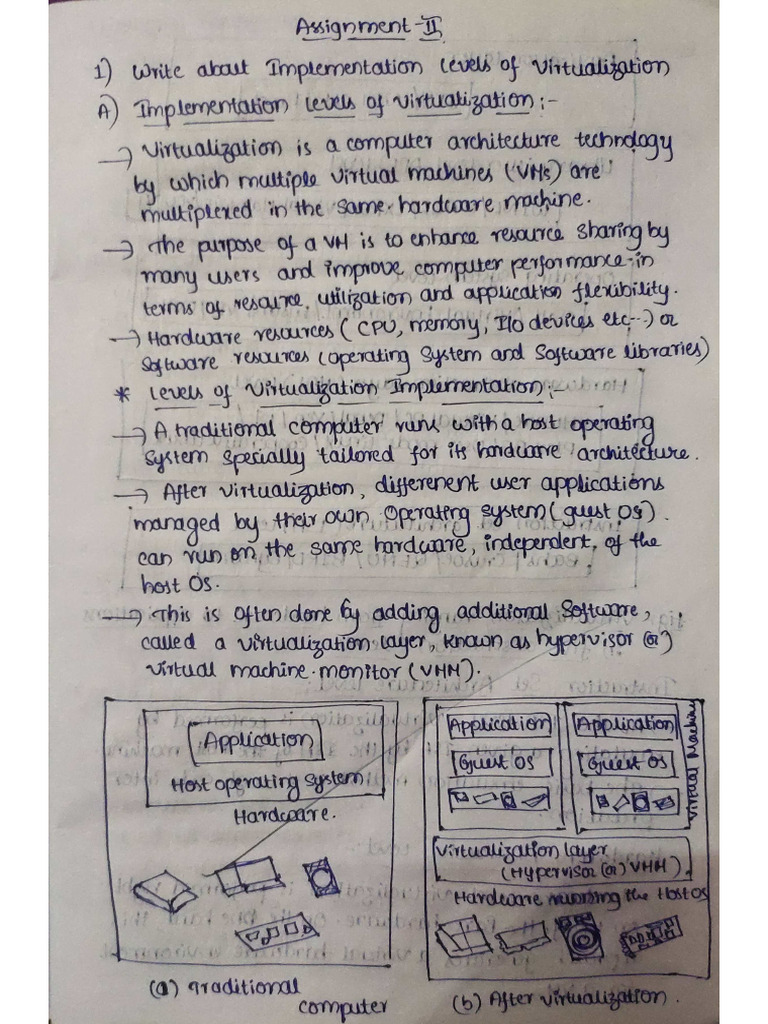 Assignment-II
1) Write about Implementation Levels of Virtualization
A) Implementation Levels of Virtualization :-
→ Virtualization is a computer architecture technology
by which multiple virtual machines (VMs) are
multiplexed in the same hardware machine.
→ The purpose of a VM is to enhance resource sharing by
many users and improve computer performance in
terms of resource utilization and application flexibility.
→ Hardware resources (CPU, memory, I/O devices etc--) or
Software resources (operating System and Software libraries)
* Levels of Virtualization Implementation :-
→ A traditional computer runs with a host operating
System specially tailored for its hardware architecture.
→ After virtualization, differenent user applications
managed by their own Operating System (guest OS)
can run on the same hardware, independent of the
host OS.
→ This is often done by adding additional Software,
called a virtualization layer, known as hypervisor (or)
virtual machine monitor (VMM).
Application
Host operating System
Hardware.
(a) Traditional
computer
Application
Guest OS
Application
Guest OS
Virtual Machine
Virtualization layer
(Hypervisor (or) VMM)
Hardware running the Host OS
(b) After virtualization.